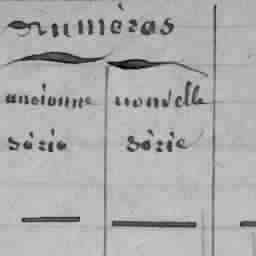 Numéros
ancienne nouvelle
série série